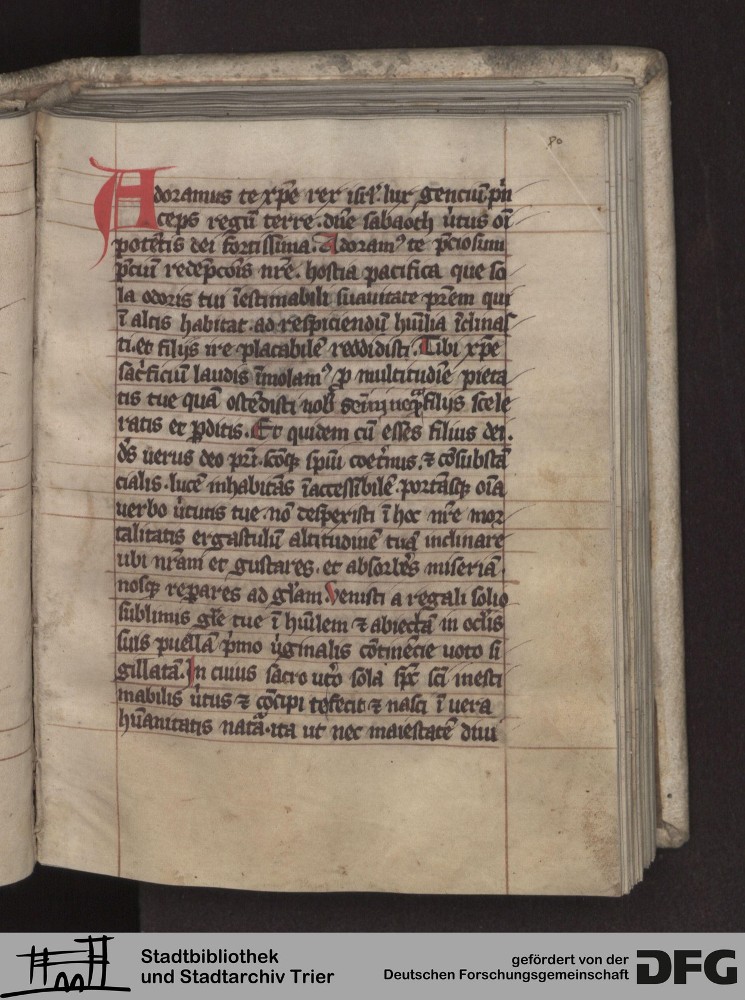 80
Adoramus te xp̄e rex isrl̄. lux genciū p̄n
ceps regū terre. dn̄e sabaoth ūtus oī
potētis dei fortissima. Adoramꝰ te p̄ciosum
p̄ciū redēpcōis nr̄e. hostia pacifica que so
la odoris tui īestimabili suauitate pr̄em qui
ī altis habitat. ad respiciendū hūilia īclinas
ti. et filijs ire placabilē reddidisti. Tibi xp̄e
sac̄ficiū laudis īmolamꝰ ꝓ multitudīe pieta
tis tue quā ostēdisti nob̄ filijs scele
ratis et ꝑditis. Et quidem cū esses filius dei.
ds̄ uerus deo pr̄i. sc̄oq̢ spūi coet̄nus. ⁊ cōsubstā
cialis. lucē inhabitās īaccessībilē. portāsq̢ oīa
uerbo ūtutis tue. nō despexisti ī hoc nr̄e mor
talitatis ergastulū altitudinē tuā inclinare
ubi nr̄am et gustares. et absorbēs miseriā.
nosq̢ repares ad gl̄am. Venisti a regali solio
sublimis gl̄e tue ī hūilem ⁊ abiectā in oc̄lis
suis puellā p̄mo ūginalis cōtinēcie uoto si
gillatā. In cuius sacro ut̄o sola sp̄c sc̄i inesti
mabilis ūtus ⁊ cōcipi te fecit ⁊ nasci ī uera
hūanitatis natā. ita ut nec maiestatē diui
Stadtbibliothek
und Stadtarchiv Trier
gefördert von der
Deutschen Forschungsgemeinschaft
DFG